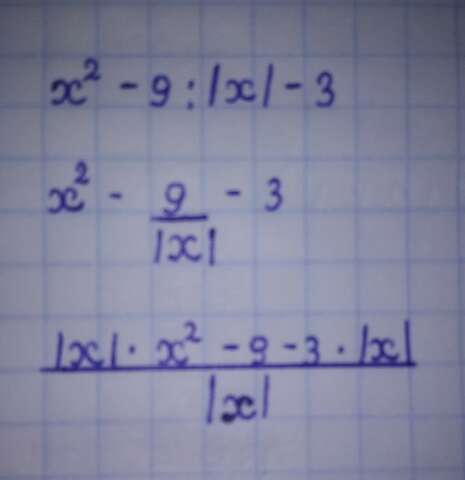 x² - 9 : |x| - 3
x² - 9/|x| - 3
|x| · x² - 9 - 3 · |x| / |x|